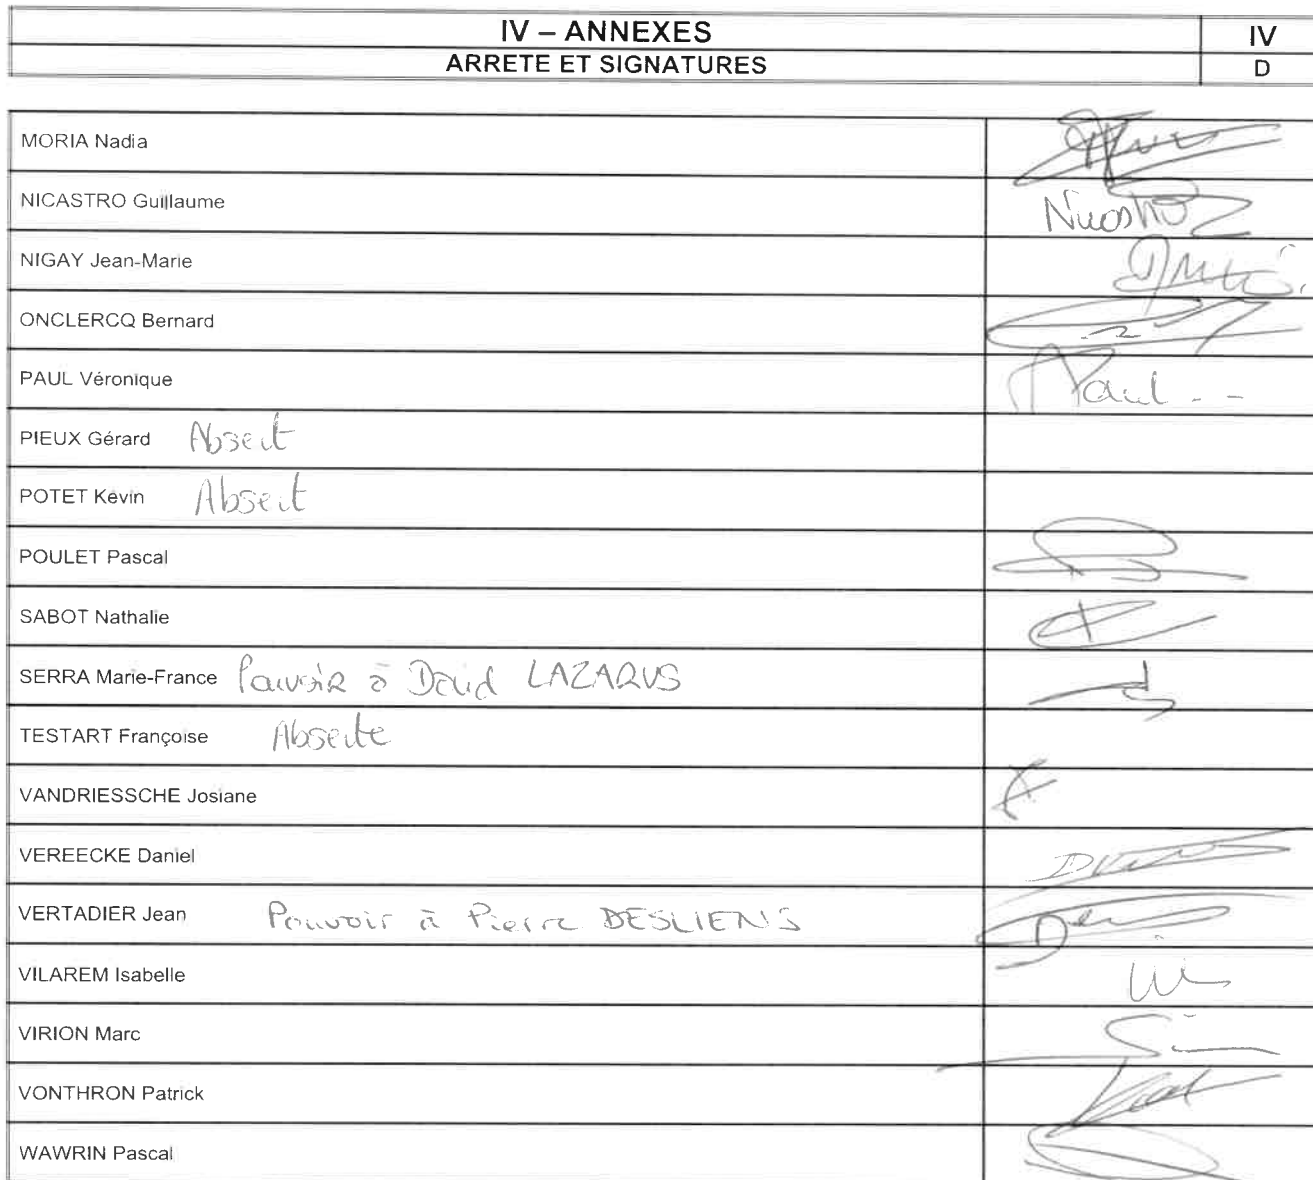 IV – ANNEXES IV
ARRETE ET SIGNATURES D
MORIA Nadia
NICASTRO Guillaume Nicastro
NIGAY Jean-Marie
ONCLERCQ Bernard
PAUL Véronique Paul
PIEUX Gérard Absent
POTET Kévin Absent
POULET Pascal
SABOT Nathalie
SERRA Marie-France Pouvoir à David LAZARUS
TESTART Françoise Absente
VANDRIESSCHE Josiane
VEREECKE Daniel
VERTADIER Jean Pouvoir à Pierre DESLIENS
VILAREM Isabelle
VIRION Marc
VONTHRON Patrick
WAWRIN Pascal